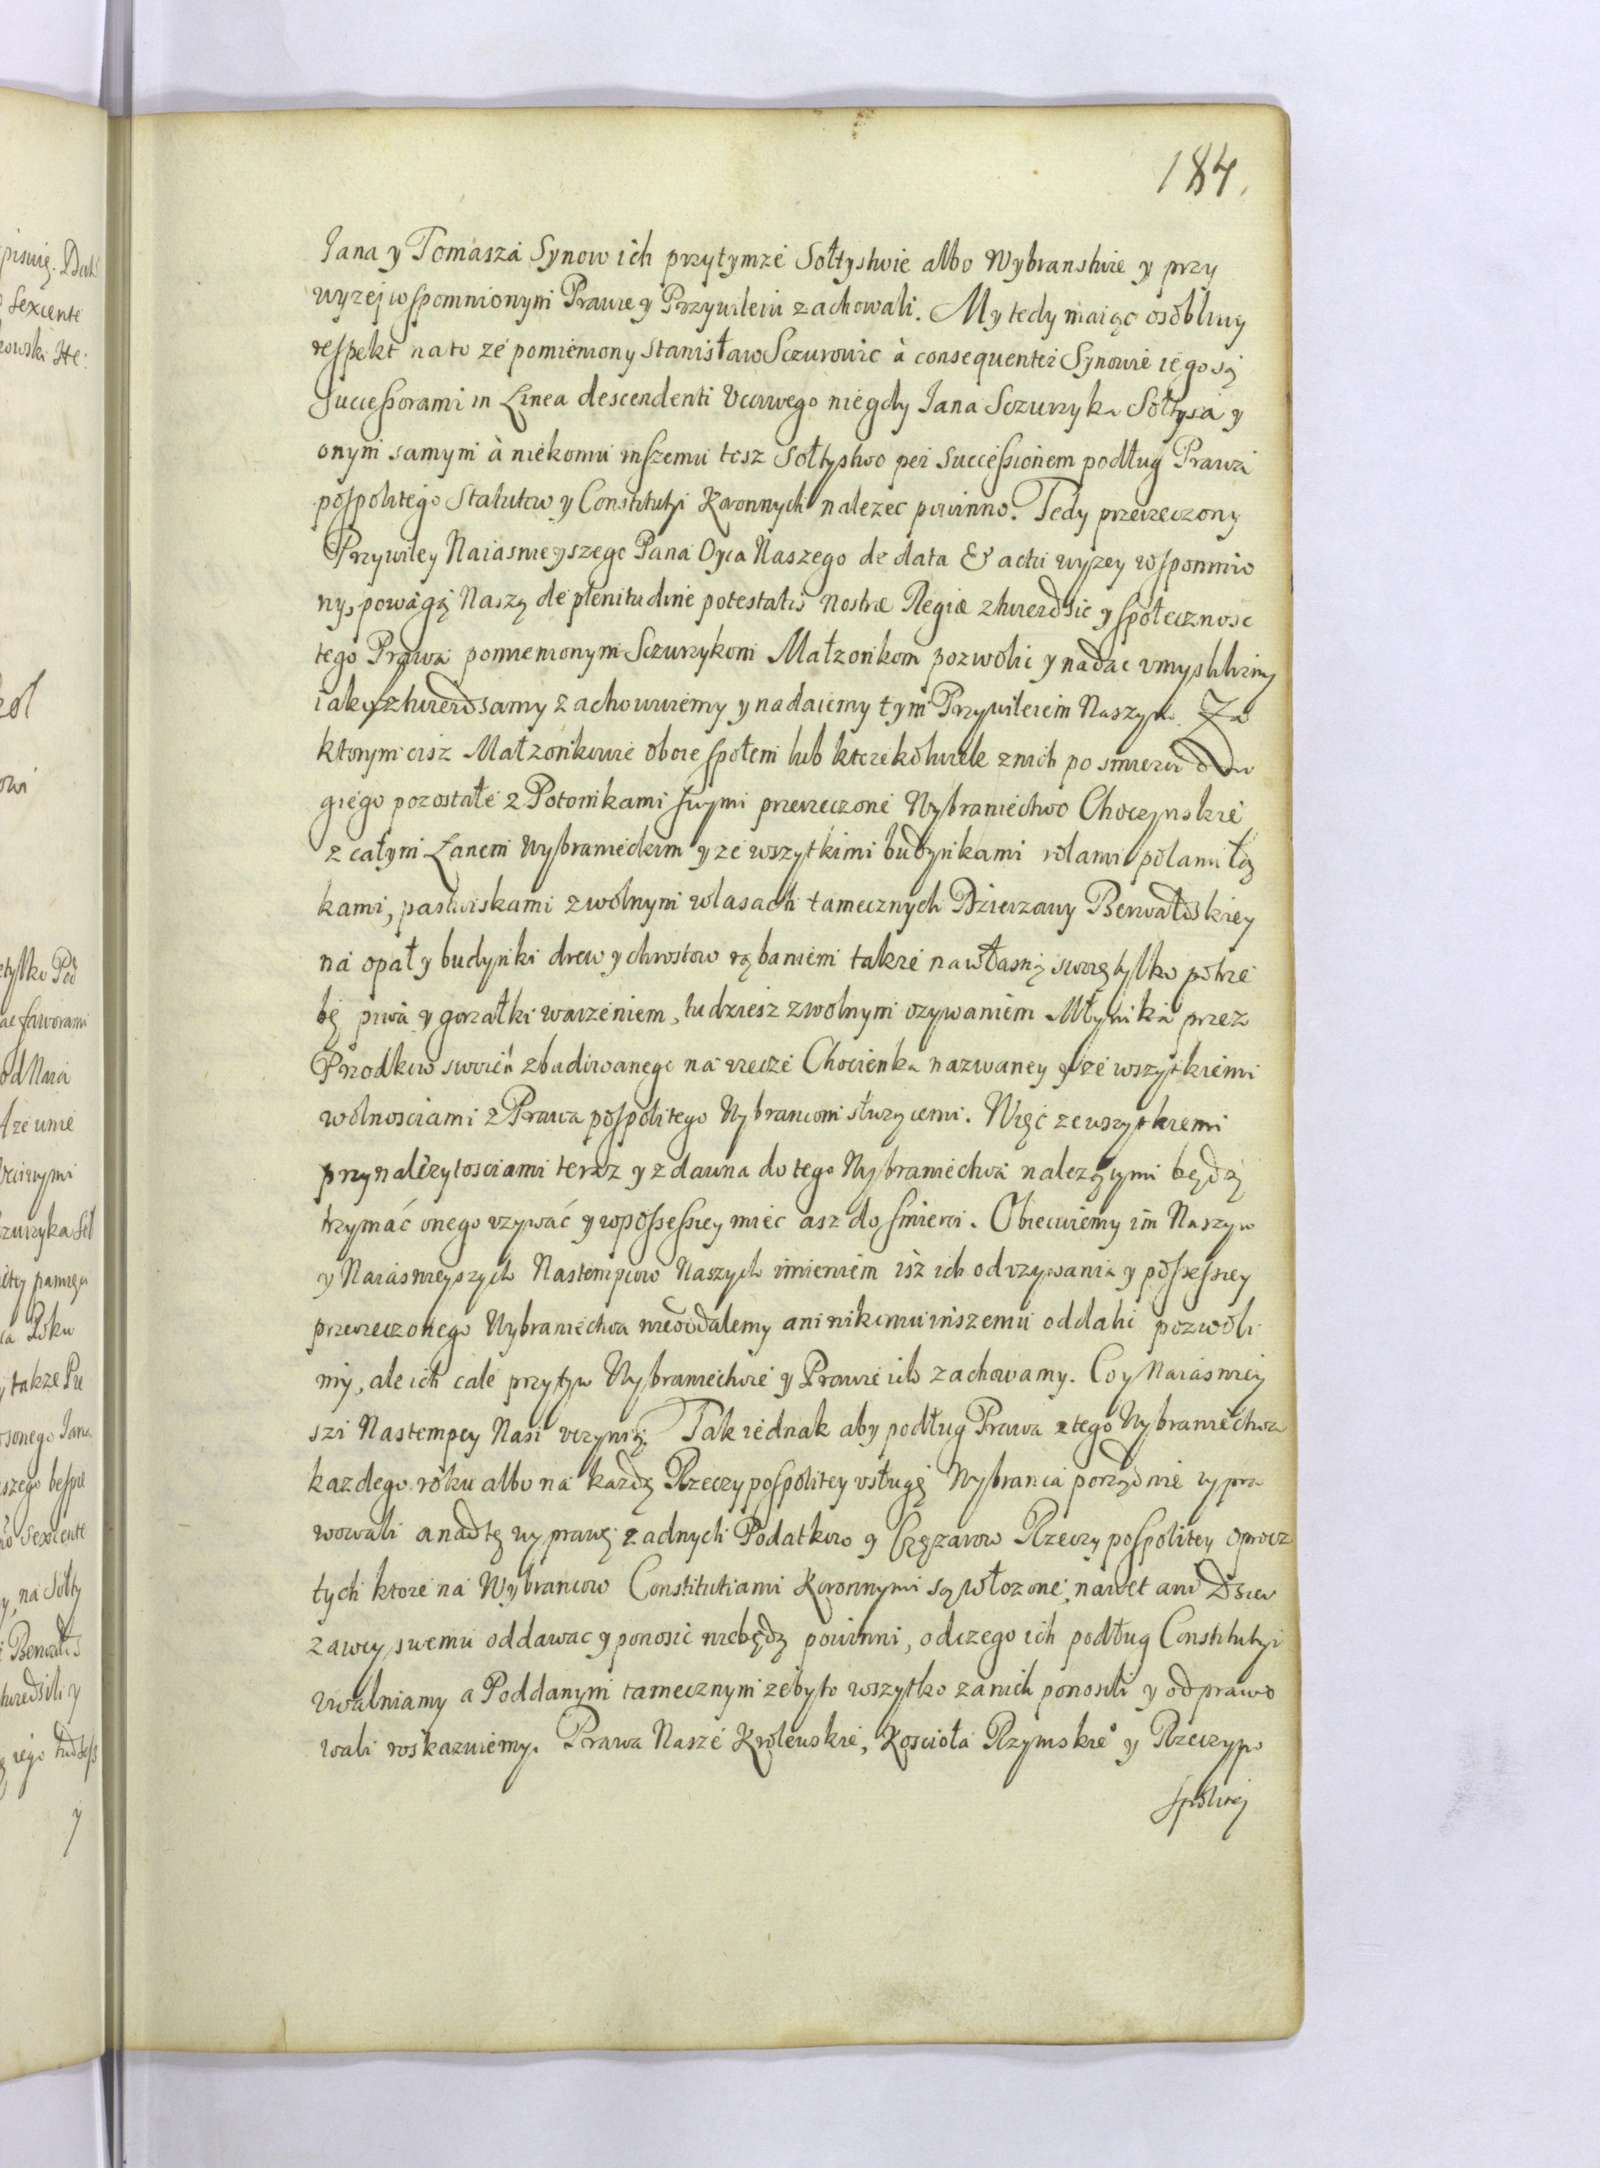 184.
Jana y Tomasza Synow ich przytymze Sołtystwie albo Wybranstwie y przy
wyzej wspomnionym Prawie y Przywileiu zachowali. My tedy maiąc osobliwy
respekt na to ze pomieniony Stanisław Sczurowic à consequenter Synowie iego są
Successorami in Linea descendenti Vcciwego niegdy Jana Sczurzyka Sołtysa y
onym samym à niekomu inszemu tosz Sołtystwo per Successionem podług Prawa
pospolitego Statutow y Constitutyi Koronnych nalezec powinno. Tedy przerzeczony
Przywiley Naiasnieyszego Pana Oyca Naszego de data & actu wyzey wspomnio
ny, powagą Naszą de plenitudine potestatis Nostræ Regiæ ztwierdsic y społecznosc
tego Prawa pomienionym Sczurzykom Małzonkom pozwolic y nadac vmyslilismy
iakosz ztwierdsamy zachowuiemy y nadaiemy tym Przywileiem Naszym. Za
ktorym cisz Małzonkowie oboie społem lub ktorekolwiek znich po smierci dru
giego pozostałe z Potomkami swymi przerzeczone Wybraniectwo Choczynskie
z całym Łanem Wybranieckim y ze wszytkimi budynkami rolami polami łą
kami, pastwiskami z wolnym w lasach tamecznych Dzierzawy Berwałdskiey
na opał y budynki drew y chrostow rąbaniem takze na własną swoię tylko potrze
bę piwa y gorzałki warzeniem, tudziesz z wolnym vzywaniem Młynika przez
Przodkow swoich zbudowanego na rzecze Chocienka nazwaney y ze wszytkiemi
wolnosciami z Prawa pospolitego Wybrancom słuzącemi. Więc ze wszytkiemi
przynalezytosciami teraz y z dawna do tego Wybraniectwa nalezącymi będą
trzymać onego vzywać y w possessiey miec asz do smierci. Obiecuiemy im Naszym
y Naiasnieyszych Nastempcow Naszych imieniem isz ich od vzywania y possessiey
przerzeczonego Wybraniectwa nieoddalemy ani nikomu inszemu oddalic pozwoli
my, ale ich cale przytym Wybraniectwie y Prawie ich zachowamy. Co y Naiasniey
szi Nastempcy Nasi vczynią. Tak iednak aby podług Prawa z tego Wybraniectwa
kazdego roku albo na kazdą Rzeczypospolitey vsługę Wybranca porządnie wypra
wowali a nad tę wyprawę zadnych Podatkow y Cięzarow Rzeczypospolitey oprocz
tych ktore na Wybrancow Constitutiami Koronnymi są włozone, nawet ani Dzier
zawcy swemu oddawac y ponosic niebędą powinni, od czego ich podług Constitutyi
vwalniamy a Poddanym tamecznym zeby to wszytko za nich ponosili y odprawo
wali roskazuiemy. Prawa Nasze Krolewskie, Koscioła Rzymskie° y Rzeczypo
spolitej